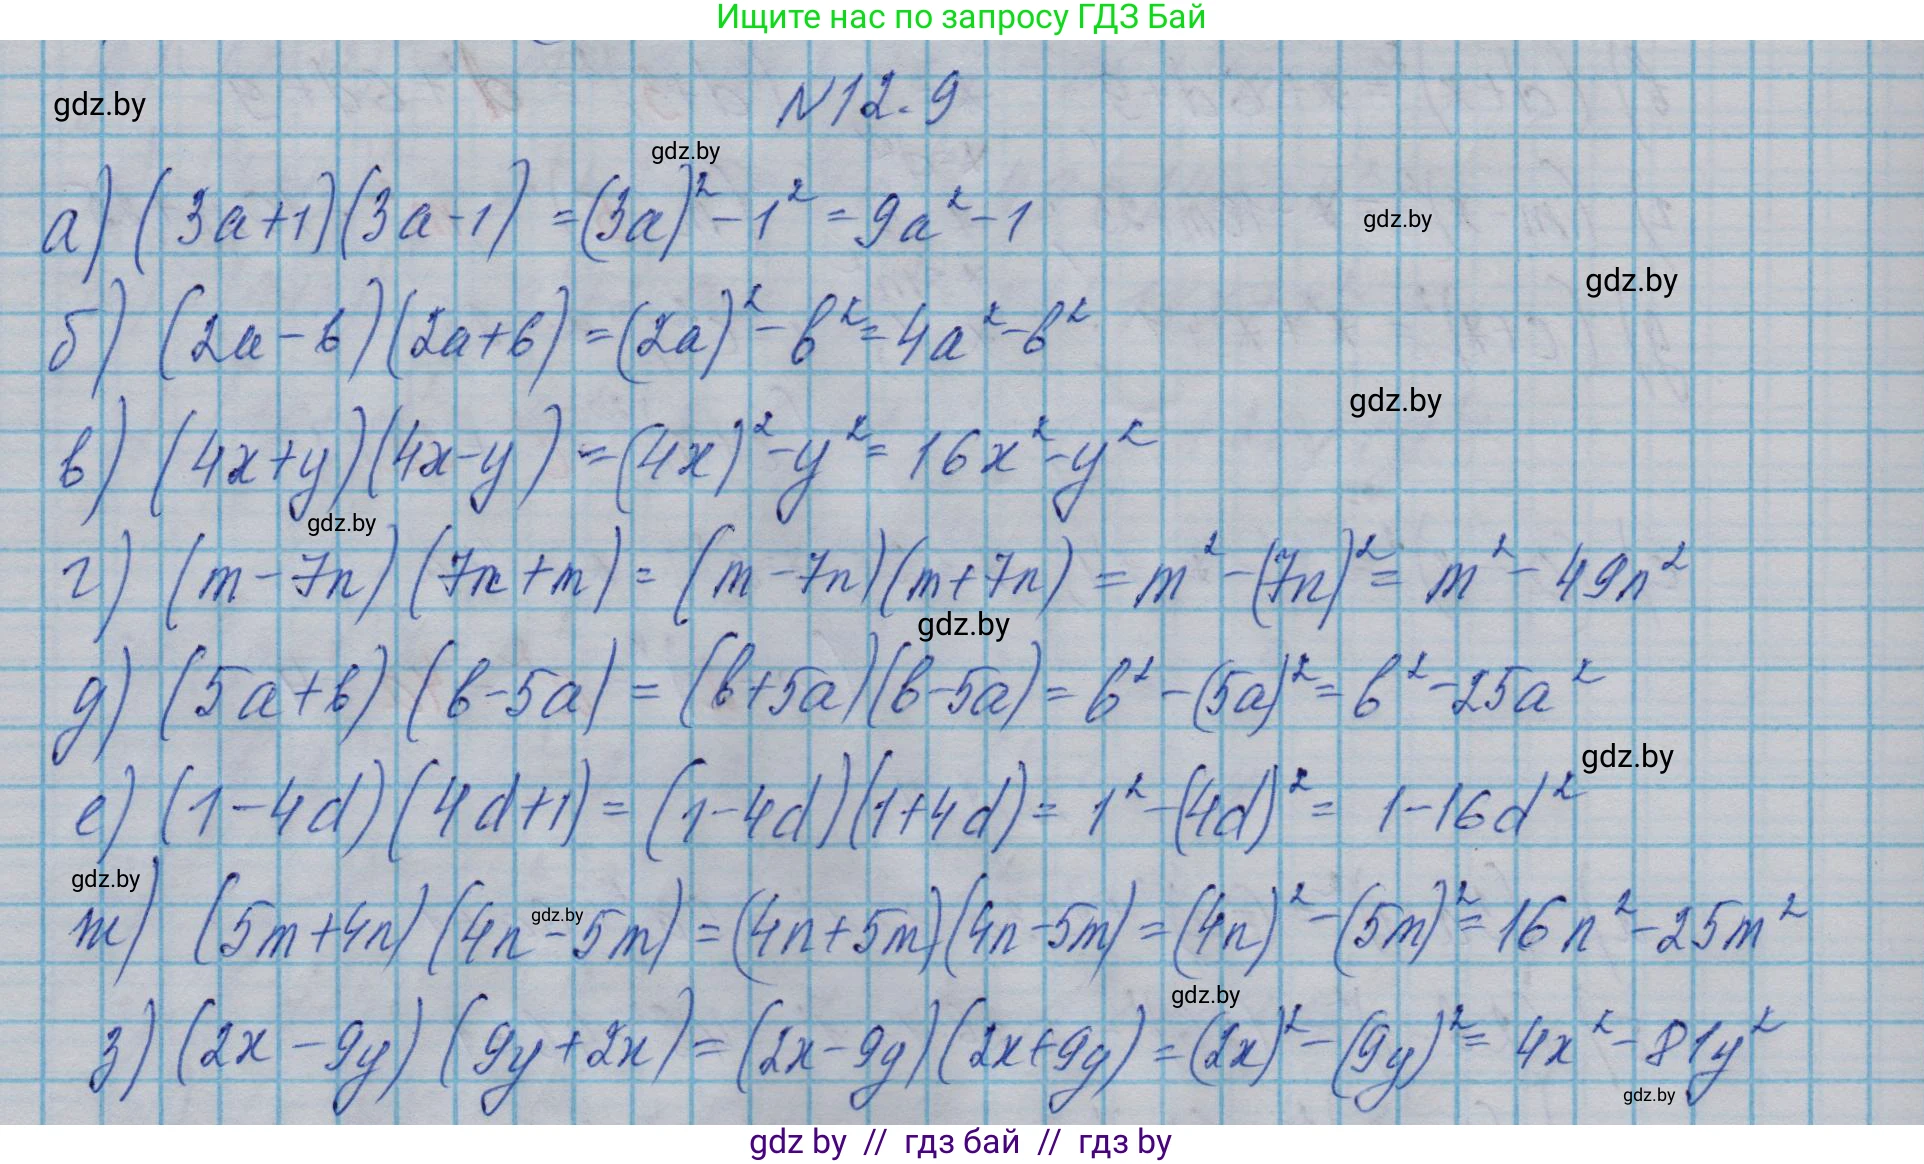 Ищите нас по запросу ГДЗ Бай
N12.9
gdz.by
gdz.by
а) (3a+1)(3a-1) = (3a)² - 1² = 9a² - 1
gdz.by
gdz.by
б) (2a-b)(2a+b) = (2a)² - b² = 4a² - b²
gdz.by
в) (4x+y)(4x-y) = (4x)² - y² = 16x² - y²
gdz.by
г) (m-7n)(7n+m) = (m-7n)(m+7n) = m² - (7n)² = m² - 49n²
gdz.by
д) (5a+b)(b-5a) = (b+5a)(b-5a) = b² - (5a)² = b² - 25a²
gdz.by
е) (1-4d)(4d+1) = (1-4d)(1+4d) = 1² - (4d)² = 1 - 16d²
gdz.by
ж) (5m+4n)(4n-5m) = (4n+5m)(4n-5m) = (4n)² - (5m)² = 16n² - 25m²
gdz.by
gdz.by
з) (2x-9y)(9y+2x) = (2x-9y)(2x+9y) = (2x)² - (9y)² = 4x² - 81y²
gdz.by
gdz by // гдз бай // гдз by